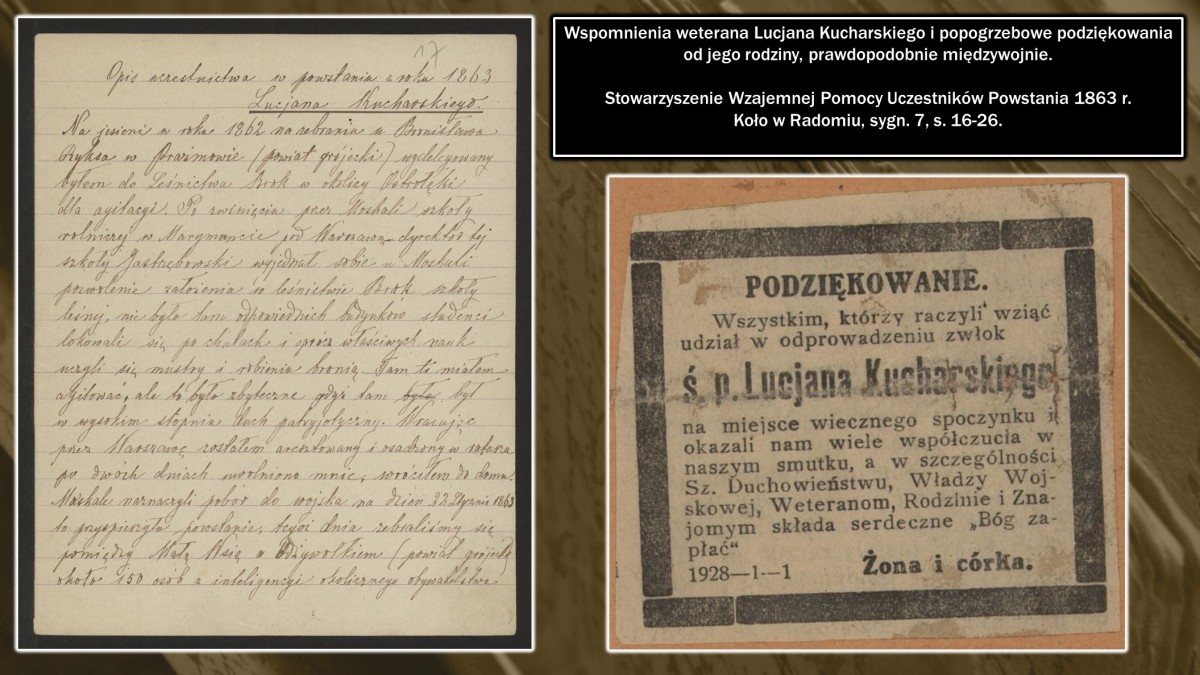 17
Opis uczestnictwa w powstaniu z roku 1863
Lucjana Kucharskiego.
Na jesieni w roku 1862 na zebraniu u Bronisława
Ryksa w Prażmowie (powiat grójecki) wydelegowany
byłem do Leśnictwa Brok w okolicy Ostrołęki
dla agitacyi. Po zwinięciu przez Moskali szkoły
rolniczej w Marymoncie pod Warszawą dyrektor tej
szkoły Jastrzębowski wyjednał sobie u Moskali
pozwolenie założenia w leśnictwie Brok szkoły
leśnej, nie było tam odpowiednich budynków studenci
lokowali się po chatach i oprócz właściwych nauk
uczyli się mustry i robienia bronią. Tam to miałem
agitować, ale to było zbyteczne gdyż tam był
w wysokim stopniu duch patryjotyczny. Wracając
przez Warszawę zostałem aresztowany i osadzony w ratuszu
po dwóch dniach uwolniono mnie, wróciłem do domu.
Moskale naznaczyli pobór do wojska na dzień 22 Stycznia 1863
to przyspieszyło powstanie, tegoż dnia zebraliśmy się
pomiędzy Małą Wsią a (powiat grójecki)
około 150 osób z inteligencyi okolicznego obywatelstwa
Wspomnienia weterana Lucjana Kucharskiego i popogrzebowe podziękowania
od jego rodziny, prawdopodobnie międzywojnie.
Stowarzyszenie Wzajemnej Pomocy Uczestników Powstania 1863 r.
Koło w Radomiu, sygn. 7, s. 16-26.
PODZIĘKOWANIE.
Wszystkim, którzy raczyli wziąć
udział w odprowadzeniu zwłok
ś. p. Lucjana Kucharskiego
na miejsce wiecznego spoczynku i
okazali nam wiele współczucia w
naszym smutku, a w szczególności
Sz. Duchowieństwu, Władzy Woj-
skowej, Weteranom, Rodzinie i Zna-
jomym składa serdeczne „Bóg za-
płać“
1928—1—1 Żona i córka.